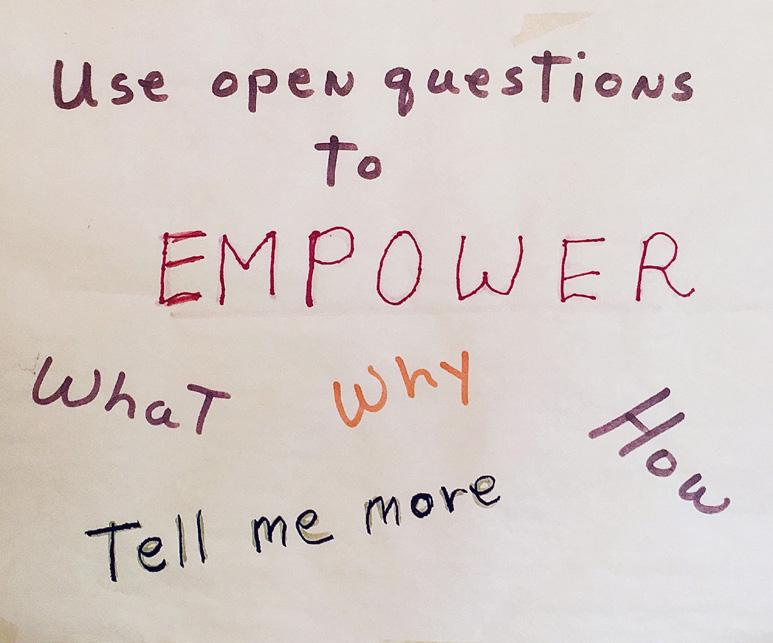 Use open questions
to
EMPOWER
What Why How
Tell me more